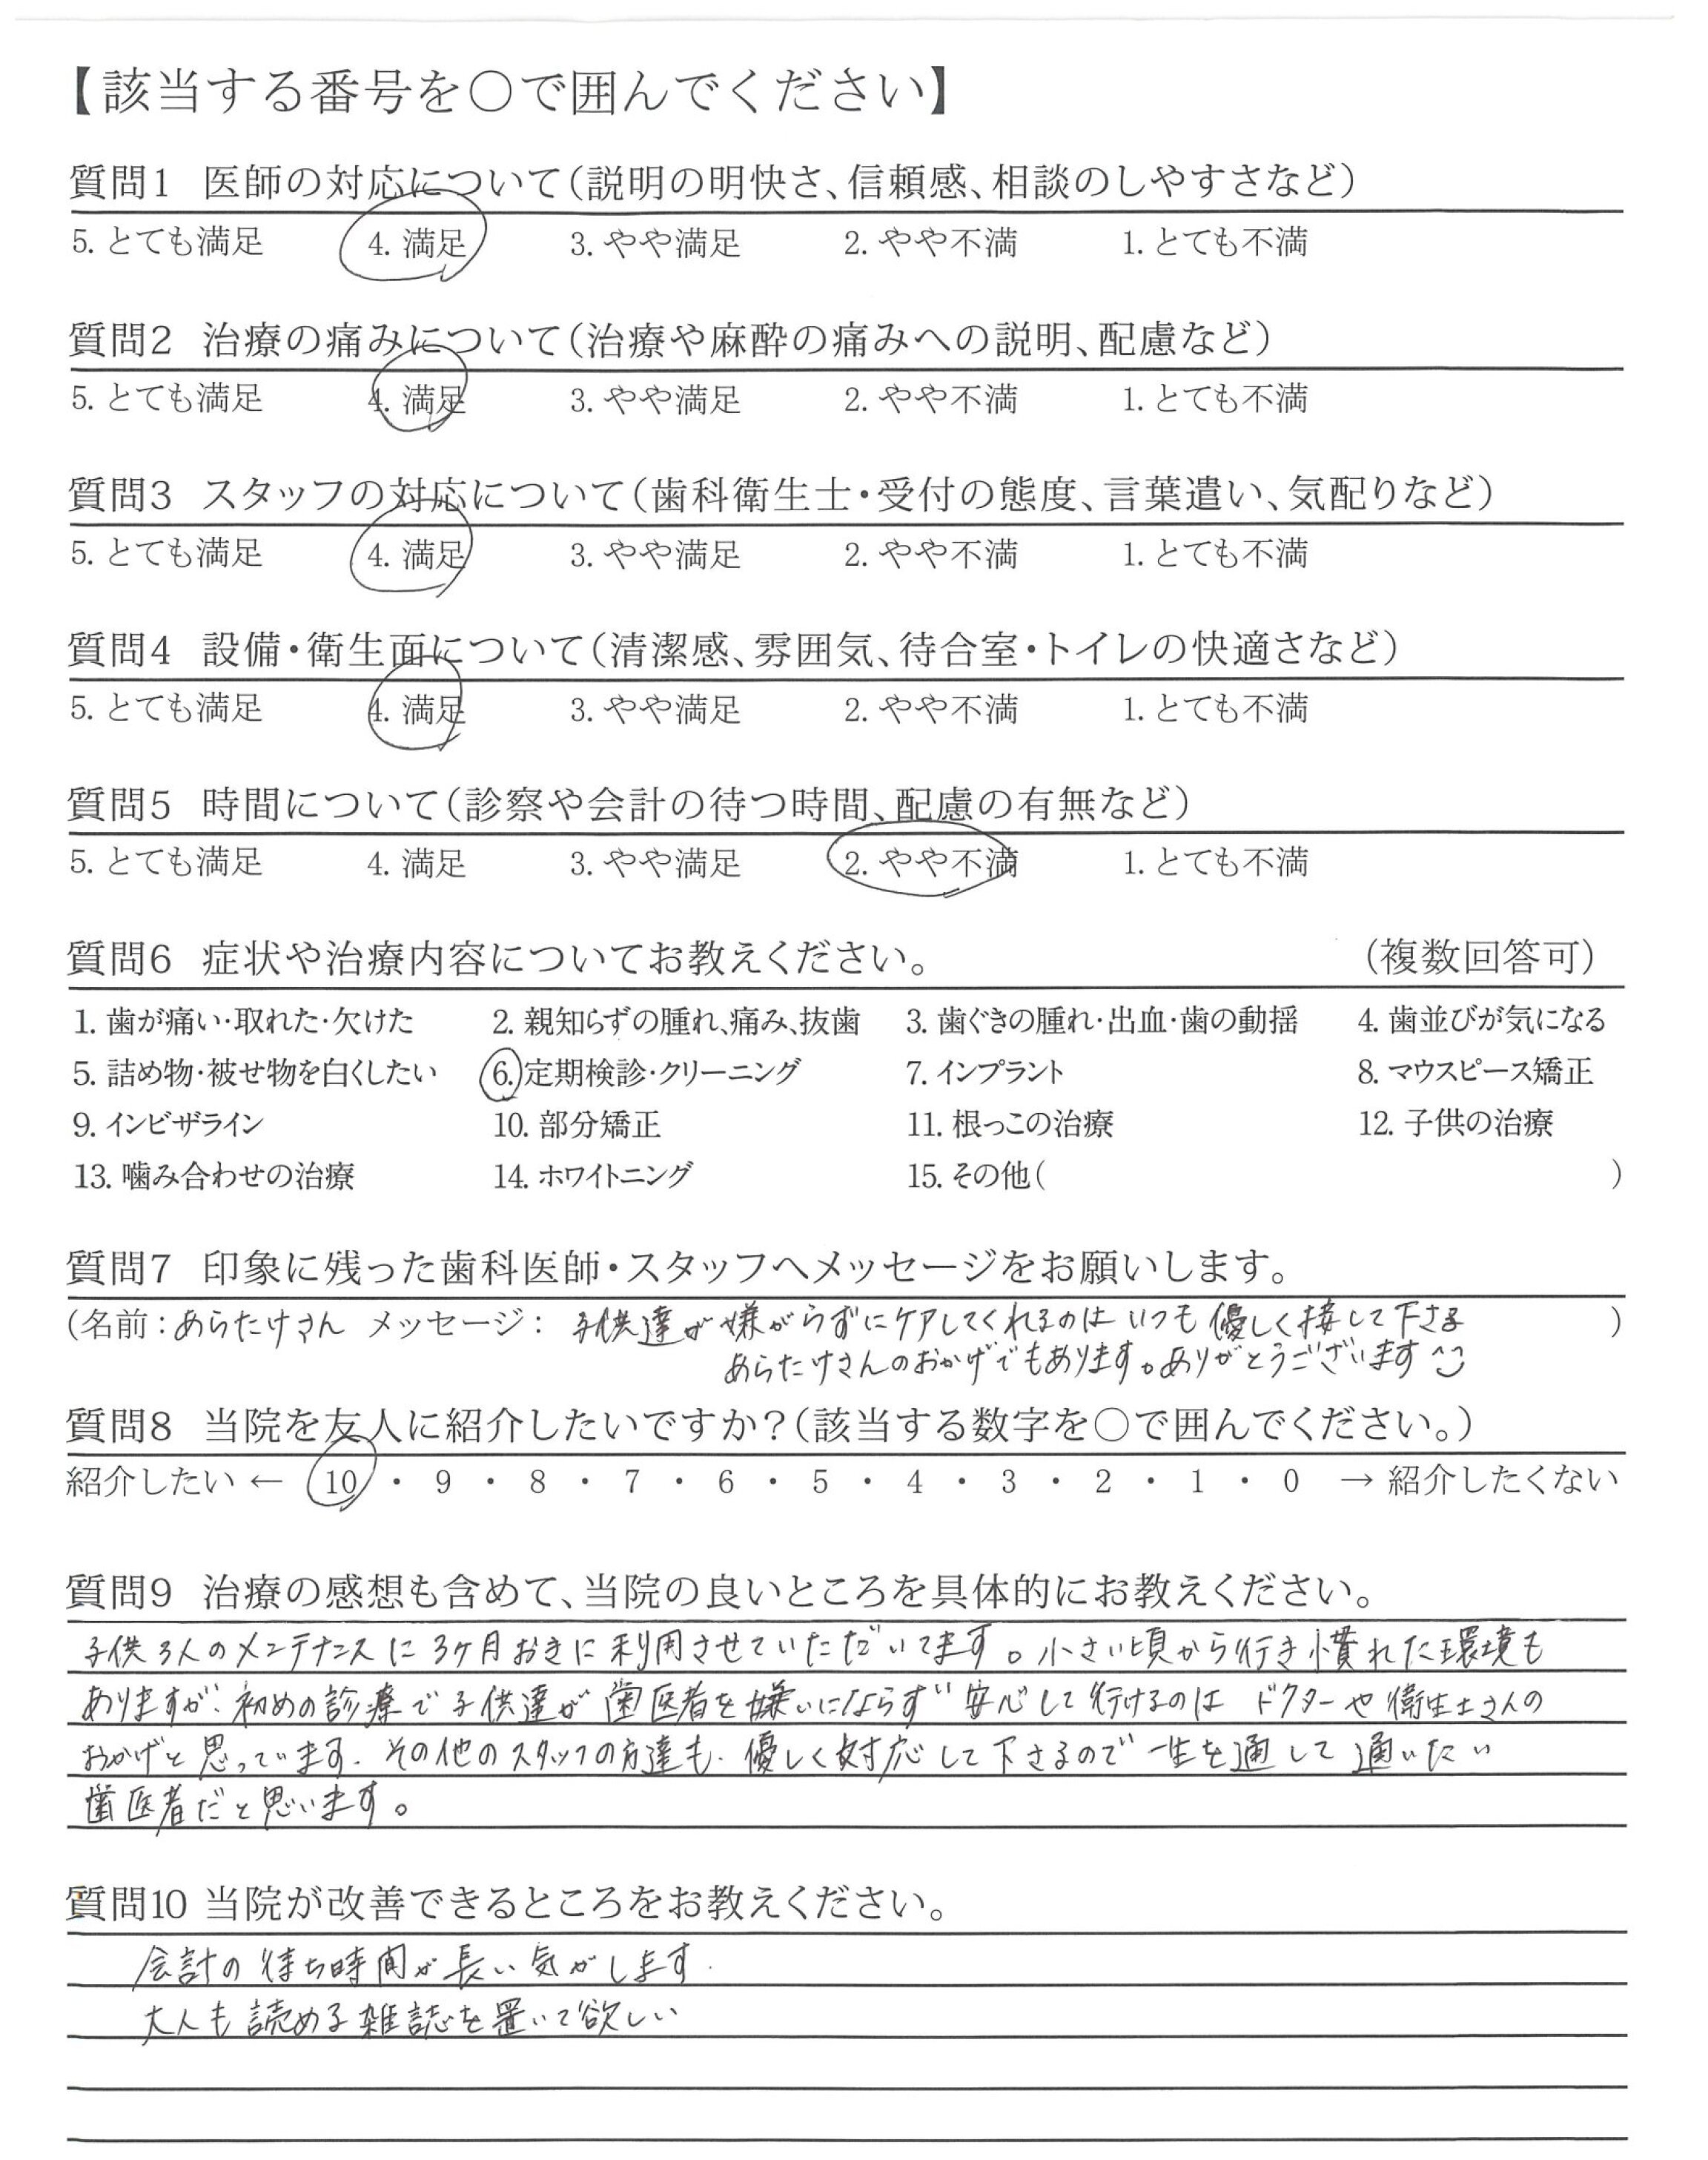 【該当する番号を○で囲んでください】
質問1 医師の対応について(説明の明快さ、信頼感、相談のしやすさなど)
5. とても満足 4. 満足 3. やや満足 2. やや不満 1. とても不満
質問2 治療の痛みについて(治療や麻酔の痛みへの説明、配慮など)
5. とても満足 4. 満足 3. やや満足 2. やや不満 1. とても不満
質問3 スタッフの対応について(歯科衛生士・受付の態度、言葉遣い、気配りなど)
5. とても満足 4. 満足 3. やや満足 2. やや不満 1. とても不満
質問4 設備・衛生面について(清潔感、雰囲気、待合室・トイレの快適さなど)
5. とても満足 4. 満足 3. やや満足 2. やや不満 1. とても不満
質問5 時間について(診察や会計の待つ時間、配慮の有無など)
5. とても満足 4. 満足 3. やや満足 2. やや不満 1. とても不満
質問6 症状や治療内容についてお教えください。 (複数回答可)
1. 歯が痛い・取れた・欠けた 2. 親知らずの腫れ、痛み、抜歯 3. 歯ぐきの腫れ・出血・歯の動揺 4. 歯並びが気になる
5. 詰め物・被せ物を白くしたい 6. 定期検診・クリーニング 7. インプラント 8. マウスピース矯正
9. インビザライン 10. 部分矯正 11. 根っこの治療 12. 子供の治療
13. 噛み合わせの治療 14. ホワイトニング 15. その他( )
質問7 印象に残った歯科医師・スタッフへメッセージをお願いします。
(名前：あらたけさん メッセージ： 子供達が嫌がらずにケアしてくれるのはいつも優しく接して下さる )
あらたけさんのおかげでもあります。ありがとうございます^^
質問8 当院を友人に紹介したいですか？(該当する数字を○で囲んでください。)
紹介したい ← 10 ・ 9 ・ 8 ・ 7 ・ 6 ・ 5 ・ 4 ・ 3 ・ 2 ・ 1 ・ 0 → 紹介したくない
質問9 治療の感想も含めて、当院の良いところを具体的にお教えください。
子供3人のメンテナンスに3ヶ月おきに利用させていただいてます。小さい頃から行き慣れた環境も
ありますが、初めの診療で子供達が歯医者を嫌いにならず安心して行けるのはドクターや衛生士さんの
おかげと思っています。その他のスタッフの方達も、優しく対応して下さるので一生を通して通いたい
歯医者だと思います。
質問10 当院が改善できるところをお教えください。
会計の待ち時間が長い気がします.
大人も読める雑誌を置いて欲しい